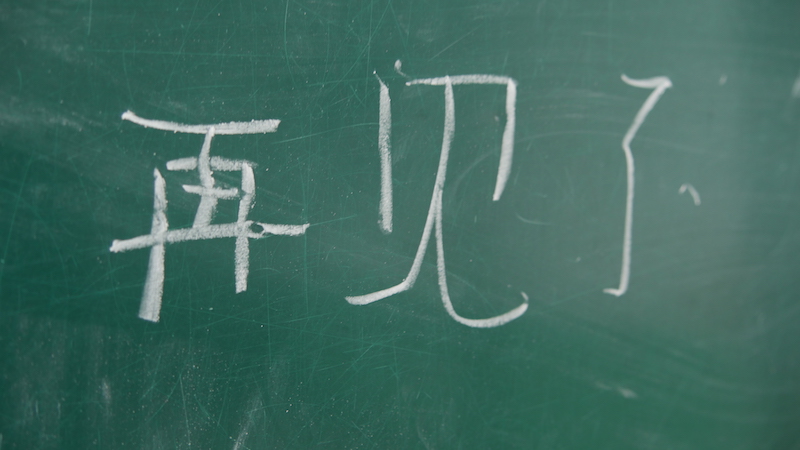 再见了